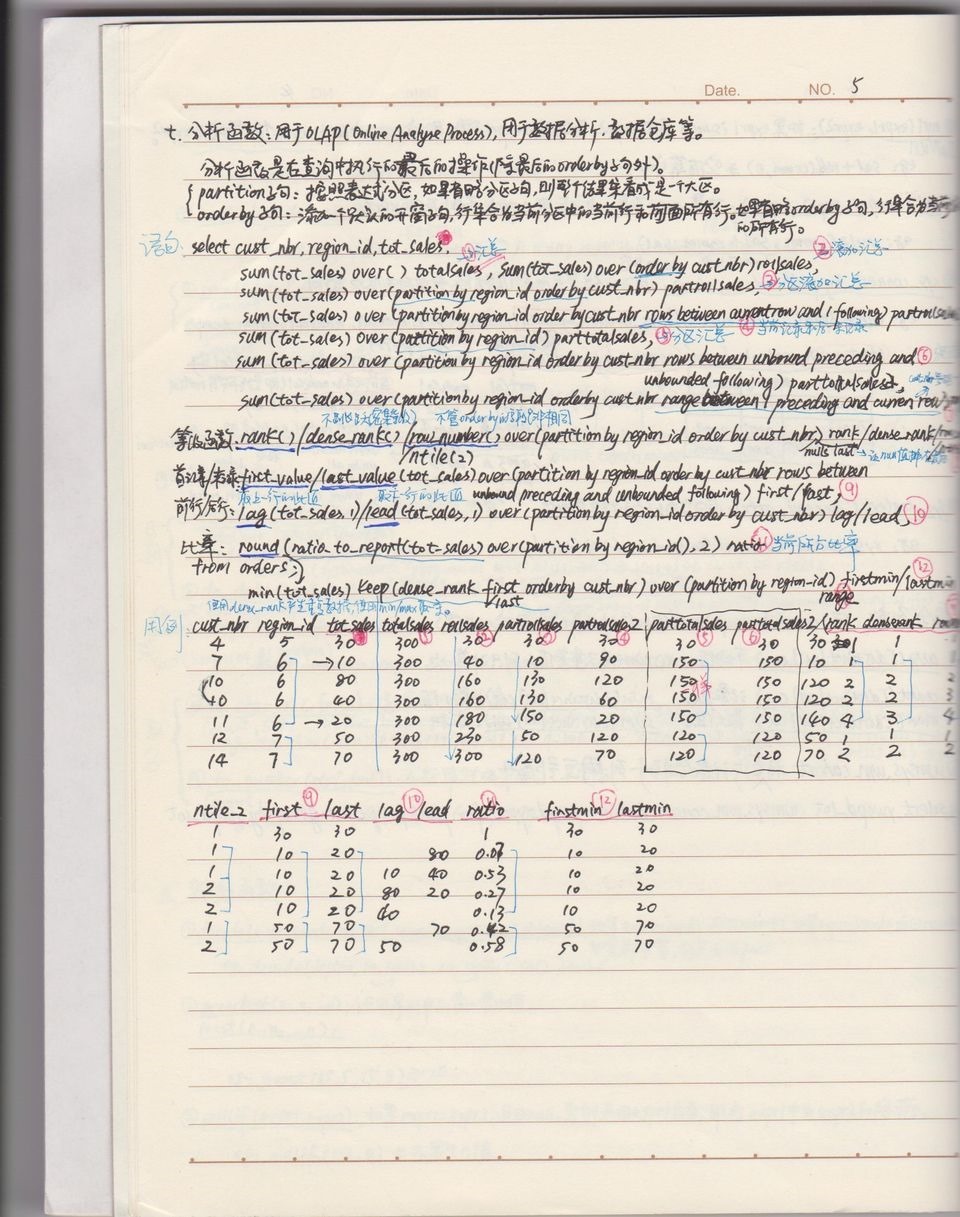 Date. NO. 5
七、分析函数：用于OLAP(Online Analyse Process),用于数据分析、数据仓库等。
分析函数是在查询中执行的最后的操作(除最后的order by子句外)。
partition子句：按照表达式分区，如果省略分区子句，则整个结果集看成是一个大区。
order by子句：添加一个默认的开窗子句，行集合为当前分区中的当前行和前面所有行。如果省略order by子句，行集合为当前
的所有行。
语句 select cust_nbr, region_id, tot_sales, ①汇总 ②滚加汇总
sum(tot_sales) over( ) totalsales, sum(tot_sales) over (order by cust_nbr) rollsales,
sum(tot_sales) over (partition by region_id order by cust_nbr) partrollsales, ③分区滚加汇总
sum(tot_sales) over (partition by region_id order by cust_nbr rows between current row and 1 following) partrollsa
sum(tot_sales) over (partition by region_id) parttotalsales, ⑤分区汇总 ④当前记录和后一条记录
sum(tot_sales) over (partition by region_id order by cust_nbr rows between unbound preceding and ⑥
unbounded following) parttotalsales2,
sum(tot_sales) over (partition by region_id order by cust_nbr range between 1 preceding and curren row)
不管order by的字段是非相同
等级函数: rank( )/dense_rank( )/row_number( ) over (partition by region_id order by cust_nbr) rank/dense_rank/
/ntile(2) nulls last
前记录/末录 first_value/last_value (tot_sales) over (partition by region_id order by cust_nbr rows between
最上一行的此值 最下一行的此值 unbound preceding and unbounded following) first/last, ⑨
前行/后行: lag (tot_sales, 1)/lead (tot_sales, 1) over (partition by region_id order by cust_nbr) lag/lead, ⑩
比率: round (ratio_to_report(tot-sales) over (partition by region_id), 2) ratio 当前所占比率
from orders;
min(tot_sales) keep (dense_rank first order by cust_nbr) over (partition by region_id) firstmin/lastmin ⑫
使用dense_rank产生重复数据,使用min/max取一条。 last range
用例 cust_nbr region_id tot_sales totalsales rollsales partrollsales partrolsales2 parttotalsales parttotalsales2 /rank denserank
4 5 30 300 30 30 30 30 30 30 1 1
7 6 →10 300 40 10 90 150 150 10 1 1 1
10 6 80 300 160 130 120 150 150 120 2 2 2
10 6 40 300 160 130 60 150 150 120 2 2 3
11 6 →20 300 180 150 20 150 150 140 4 3 4
12 7 50 300 230 50 120 120 120 50 1 1 1
14 7 70 300 300 120 70 120 120 70 2 2 2
ntile_2 first ⑨ last lag ⑩ lead ratio firstmin ⑫ lastmin
1 30 30 1 30 30
1 10 20 80 0.07 10 20
1 10 20 10 40 0.53 10 20
2 10 20 80 20 0.27 10 20
2 10 20 40 0.13 10 20
1 50 70 70 0.42 50 70
2 50 70 50 0.58 50 70